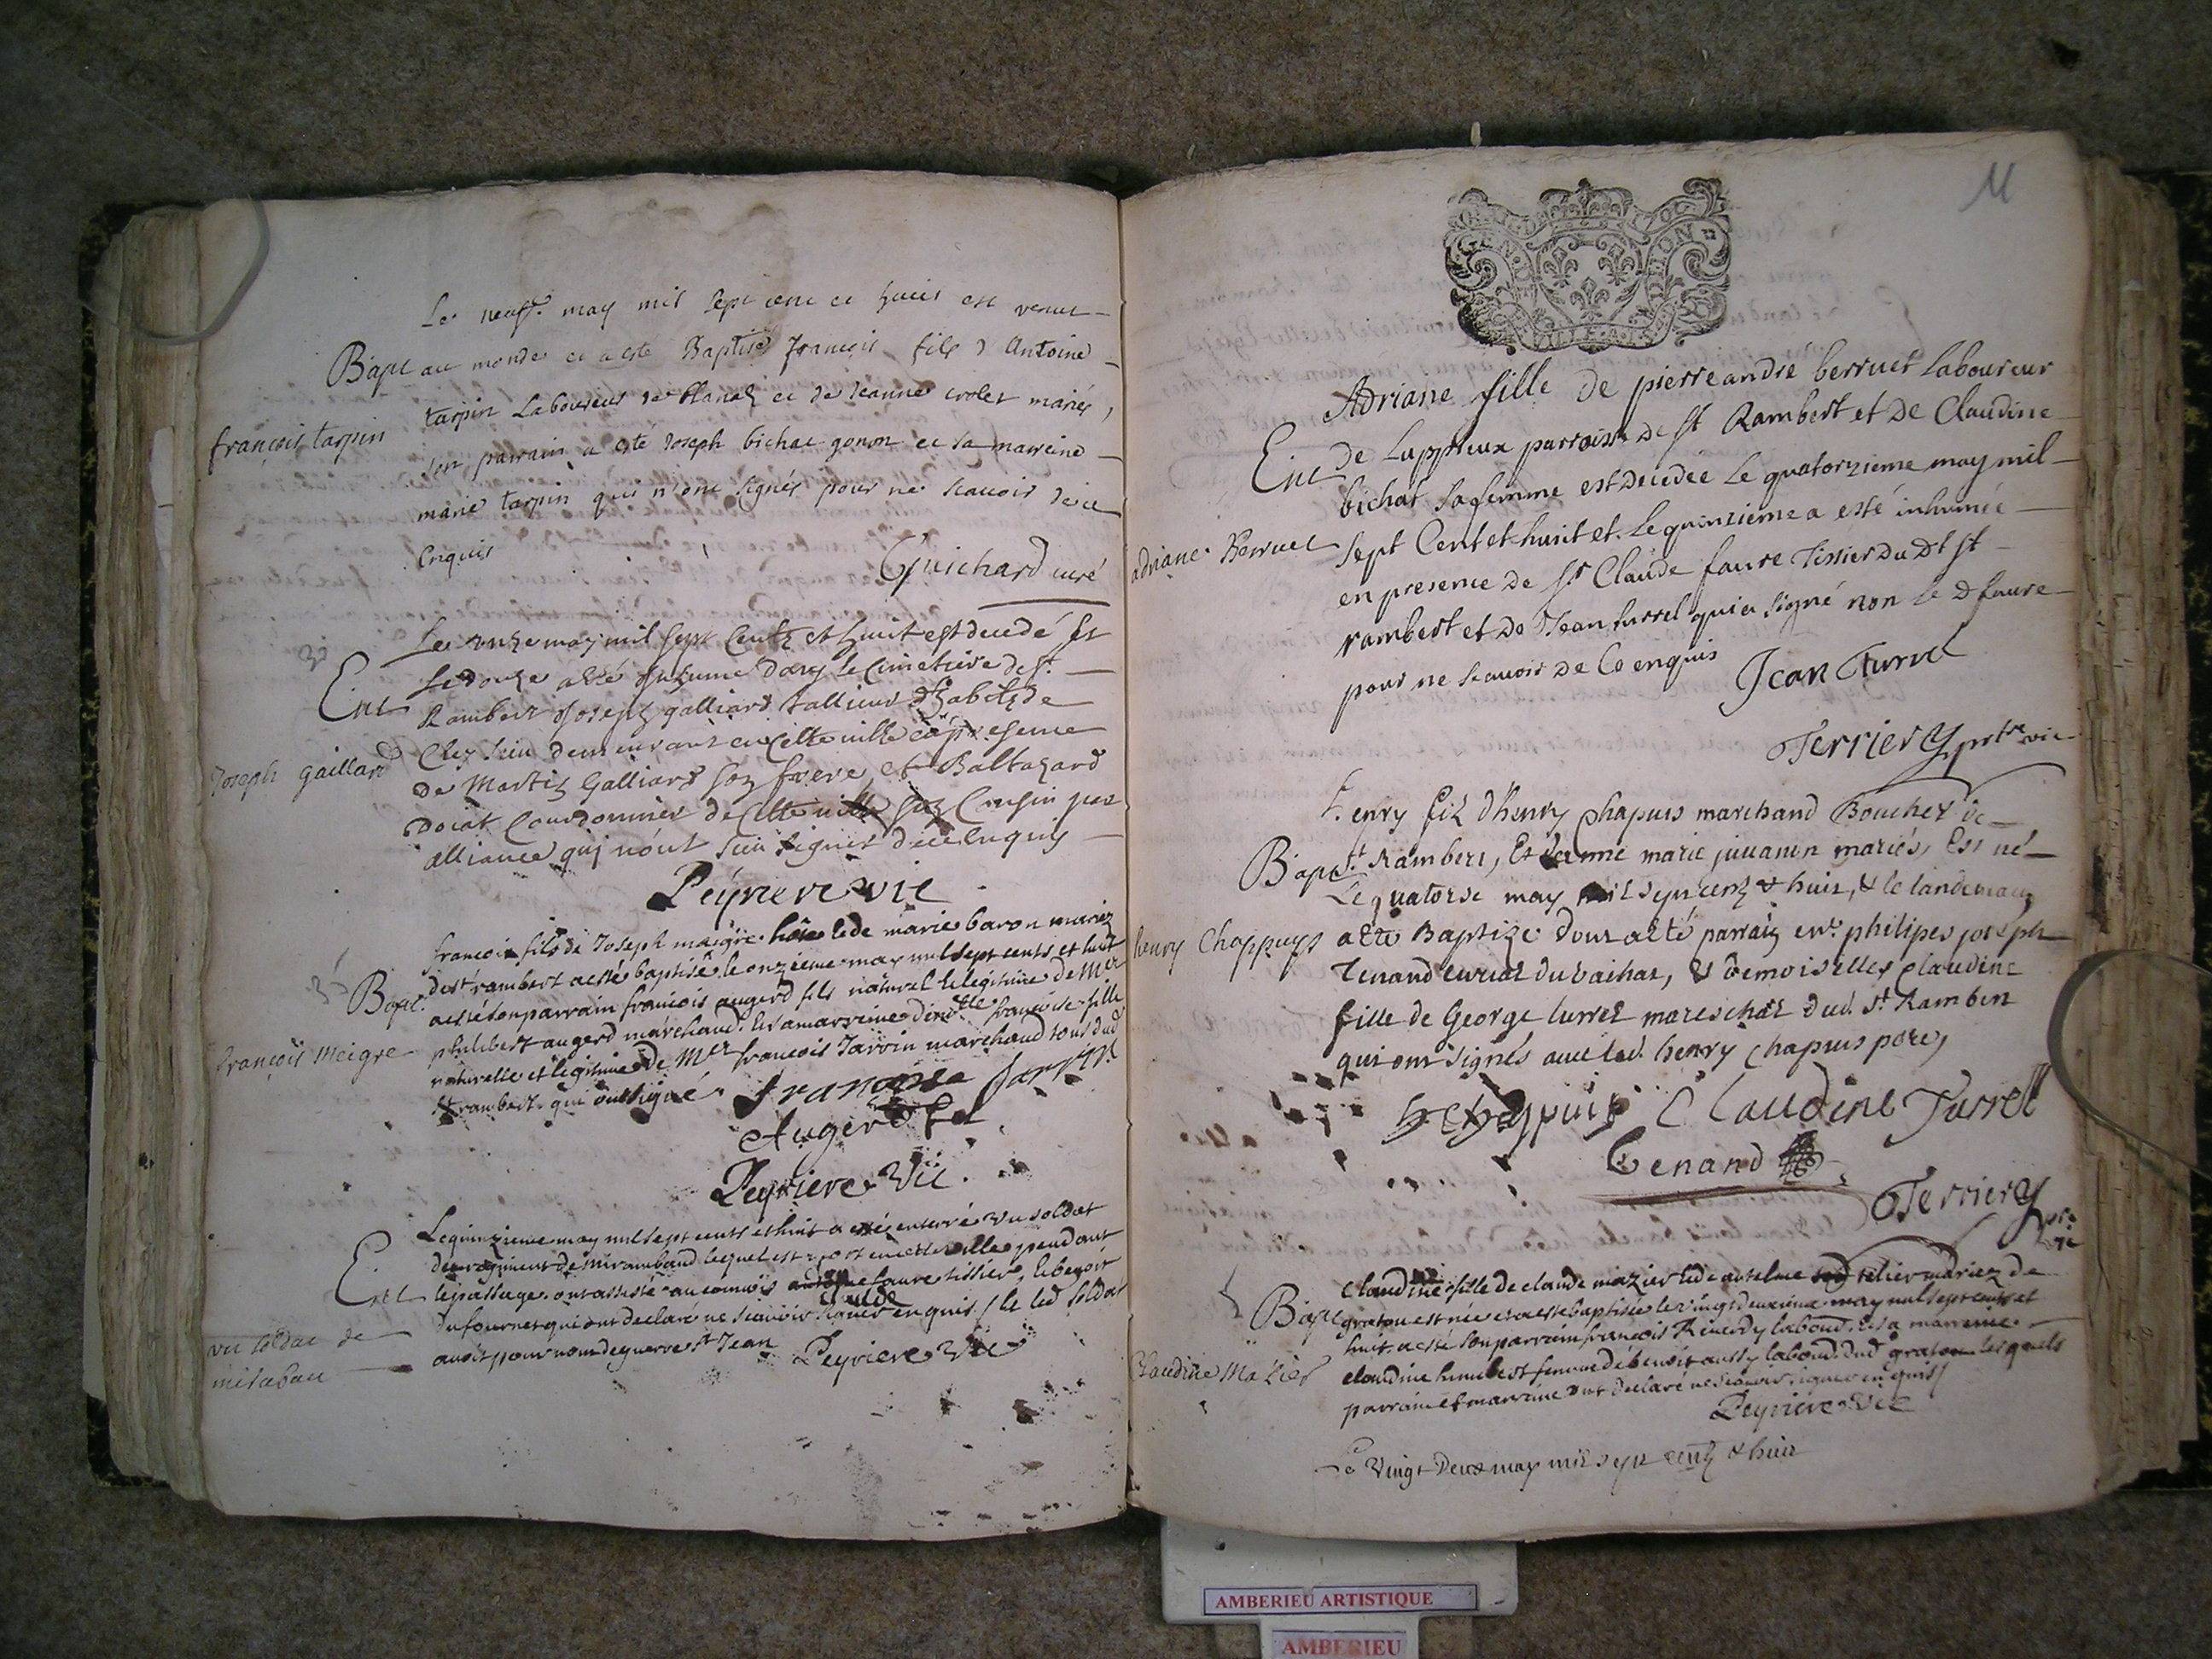 Le neuf may mil sept cent et huit est venut
Bapt au monde et a esté Baptisé françois fils d'Antoine
tarpin Laboureur de blanaz et de Jeanne crolet mariés,
françois tarpin
son parrain a esté Joseph bichat gonon et sa marreine
marie tarpin qui n'ont signés pour ne scauoir de ce
enquis
Guichard curé
Le onze may mil sept centz et huit est decedé et
Ent
le douze a esté Inhumé dans le Cimetiere de st
Rambert Joseph galliard tallieur d'habitz de
demeurant en Cette ville en presence
Joseph gaillard
de Martin Galliard son frere et Baltazard
Doiat Courdonnier de Cette ville son Cousin par
alliance qui n'ont sceu signer de ce Enquis
Peyriere vic
francois fils de Joseph maigre hôte et de marie baron mariez
de st rambert a esté baptisé le onzieme may mil sept cents et huit
Bapt.
a esté son parrain francois augerd fils naturel et legitime de Mer
philibert augerd marchand et sa marreine dem.lle francoise fille
françois Meigre
naturelle et legitime de Mer francois Jarrin marchand tous dud
st rambert qui ont signé. francoise Jarrin
Augerd
Peyriere Vic.
Le quinzieme may mil sept cents et huit a esté enterré vn soldat
du regiment de mirambaud lequel est mort en cette ville pendant
Ent
le passage ont assisté au conuois claude faure tissier, et benoit
dufournet qui ont declaré ne scauoir signer enquis / et led soldat
vn soldat de
mirabau
auoit pour nom de guerre st Jean
Peyriere Vic
11
GENERALITE DE DIJON
Adriane fille de pierre andré berruet Laboureur
Ent
de Luppieux parroisse de st Rambert et de Claudine
bichat sa femme est decedée le quatorzieme may mil
adriane Berruet
sept Cent et huit et le quinzieme a esté inhumée
en presence de sr Claude faure Tissier du dt st
rambert et de Jean turrel qui a signé non le d faure
pour ne scauoir de ce enquis
Jean Turrel
Terrier ptre vic
henry filz d'henry Chapuis marchand Boucher de
Bapt
st Rambert, Et Jeanne marie juuanon mariés, Est né
Le quatorse may mil sept centz & huit, & le landemain
henry Chappuys
a esté Baptizé dont a esté parrain mr. philipes joseph
Tenand curial du vachat, & demoiselle Claudine
fille de George turrel mareschal dud. st Rambert
qui ont signés auec led. henry Chapuis pere,
h Chappuis Claudine Turrel
Tenand
Terrier ptre vic
Claudine fille de claude mazier et de antelme tellier mariez de
Bapt
graton est née et a esté baptisée le vingt deuxieme may mil sept cents et
huit a esté son parrain francois Riuerdy laboud. et sa marreine
claudine humbert femme de benoit laboud. dud graton lesquels
Claudine Mazier
parrain et marreine ont declaré ne scauoir signer enquis /
Peyriere Vic
Le vingt Deux may mil sept centz & huit
AMBERIEU ARTISTIQUE
AMBERIEU